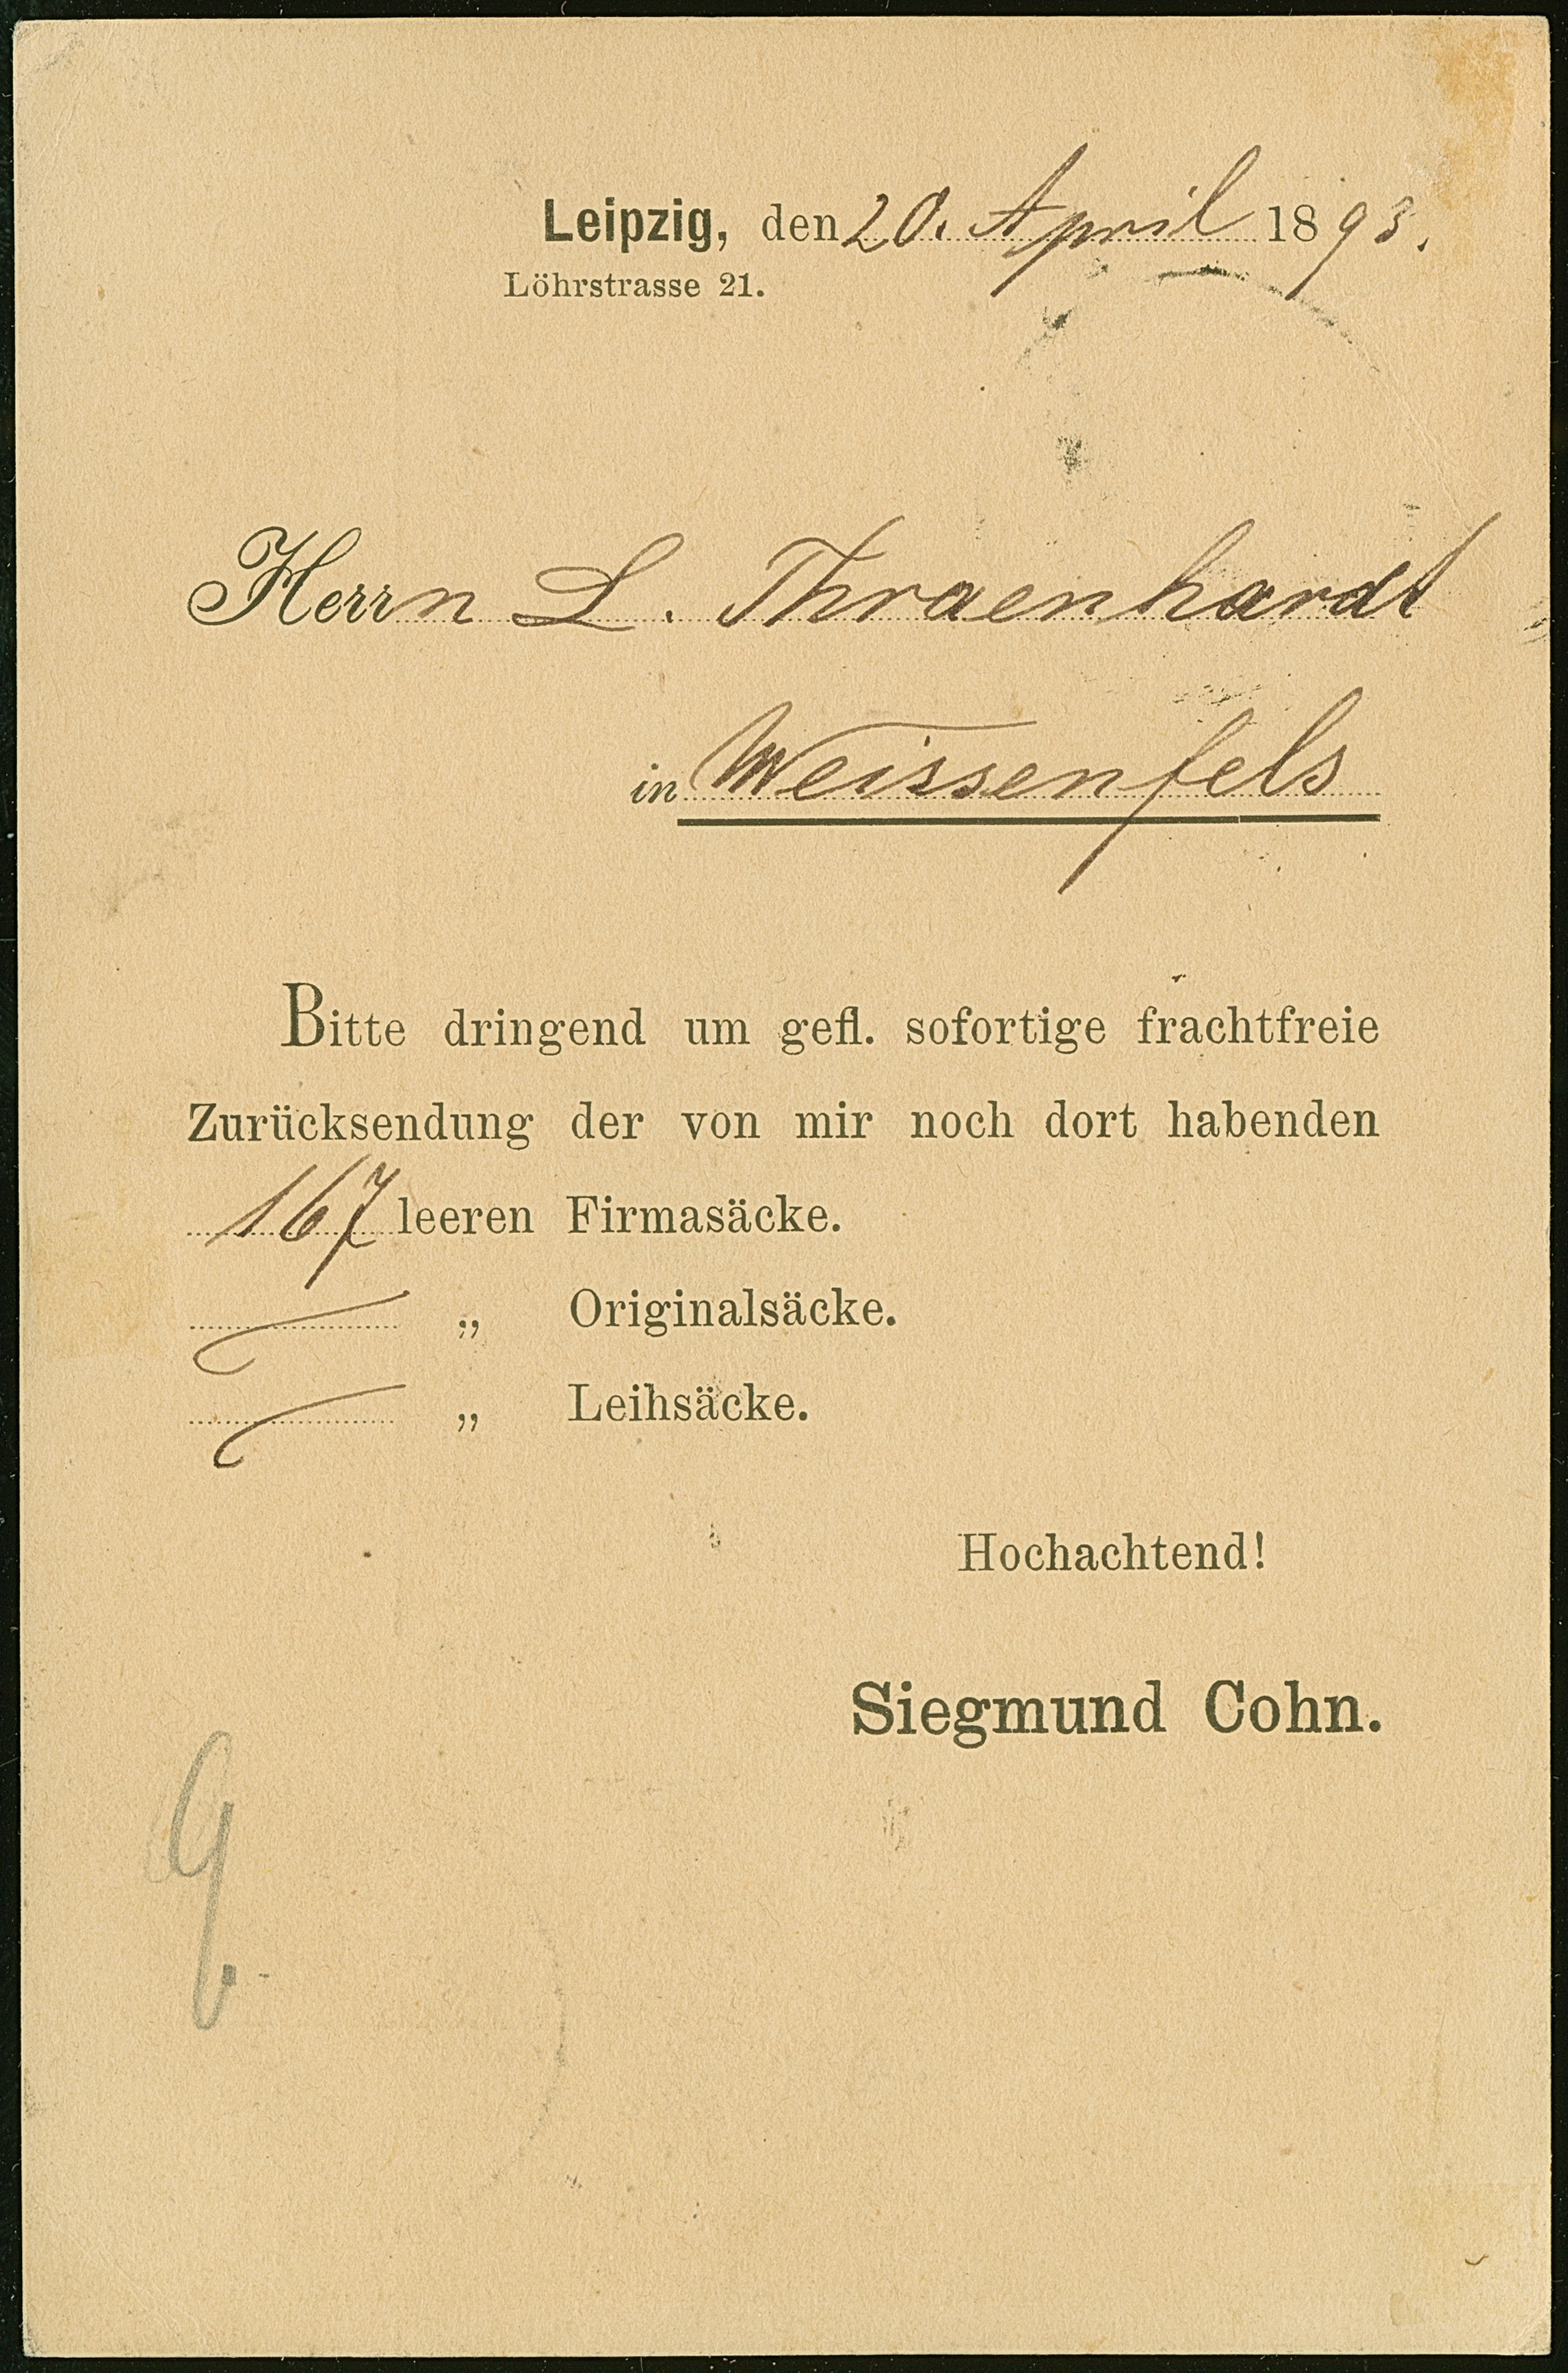 Leipzig, den 20. April 1893.
Löhrstrasse 21.
Herrn L. Thraenhardt
in Weissenfels
Bitte dringend um gefl. sofortige frachtfreie
Zurücksendung der von mir noch dort habenden
167 leeren Firmasäcke.
„ Originalsäcke.
„ Leihsäcke.
Hochachtend!
Siegmund Cohn.